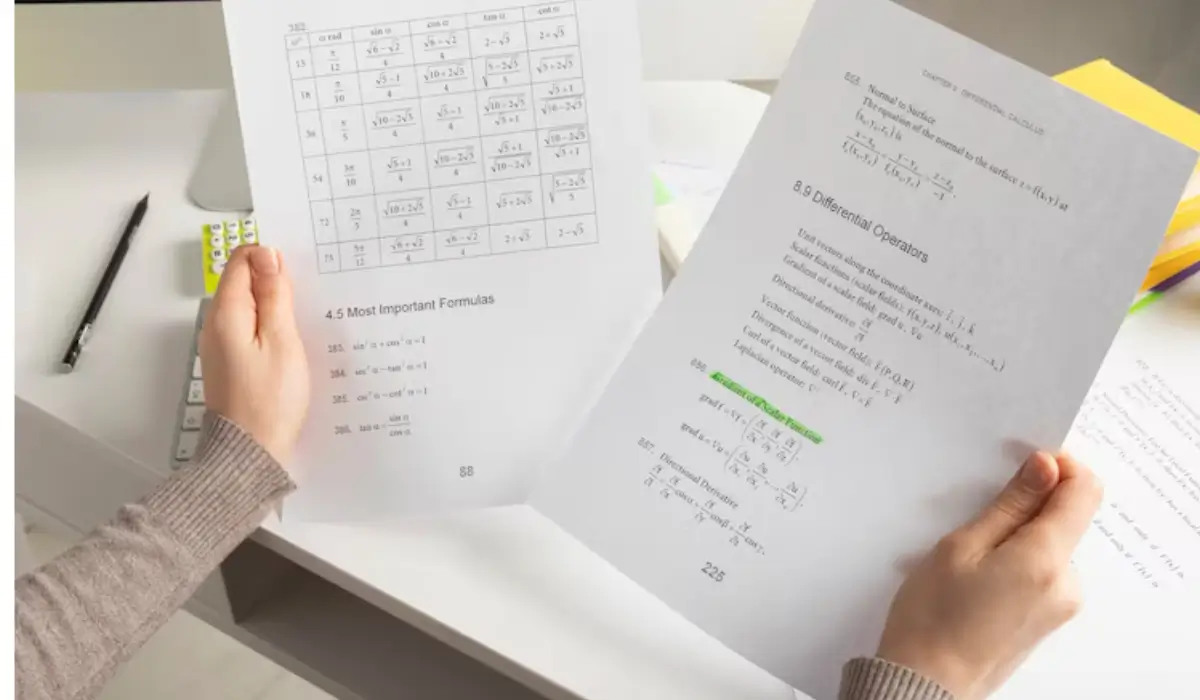 382.
α° α rad sin α cos α tan α cot α
15 π/12 (√6−√2)/4 (√6+√2)/4 2−√3 2+√3
18 π/10 (√5−1)/4 √(10+2√5)/4 √((5−2√5)/5) √(5+2√5)
36 π/5 √(10−2√5)/4 (√5+1)/4 √(10−2√5)/(√5+1) (√5+1)/√(10−2√5)
54 3π/10 (√5+1)/4 √(10−2√5)/4 (√5+1)/√(10−2√5) √(10−2√5)/(√5+1)
72 2π/5 √(10+2√5)/4 (√5−1)/4 √(5+2√5) √((5−2√5)/5)
75 5π/12 (√6+√2)/4 (√6−√2)/4 2+√3 2−√3
4.5 Most Important Formulas
383. sin² α + cos² α = 1
384. sec² α − tan² α = 1
385. csc² α − cot² α = 1
386. tan α = sin α/cos α
88
CHAPTER 8. DIFFERENTIAL CALCULUS
Normal to Surface
The equation of the normal to the surface z = f(x, y) at
(x₀, y₀, z₀) is
(x−x₀)/fₓ(x₀, y₀) = (y−y₀)/f_y(x₀, y₀) = (z−z₀)/−1.
8.9 Differential Operators
Unit vectors along the coordinate axes: i, j, k
Scalar functions (scalar fields): f(x, y, z), u(x₁, x₂, ..., xₙ)
Gradient of a scalar field: grad u, ∇u
Directional derivative: ∂f/∂l
Vector function (vector field): F(P, Q, R)
Divergence of a vector field: div F, ∇·F
Curl of a vector field: curl F, ∇×F
Laplacian operator: ∇²
886. Gradient of a Scalar Function
grad f = ∇f = (∂f/∂x, ∂f/∂y, ∂f/∂z),
grad u = ∇u = (∂u/∂x₁, ∂u/∂x₂, ..., ∂u/∂xₙ).
887. Directional Derivative
∂f/∂l = ∂f/∂x cos α + ∂f/∂y cos β + ∂f/∂z cos γ,
225